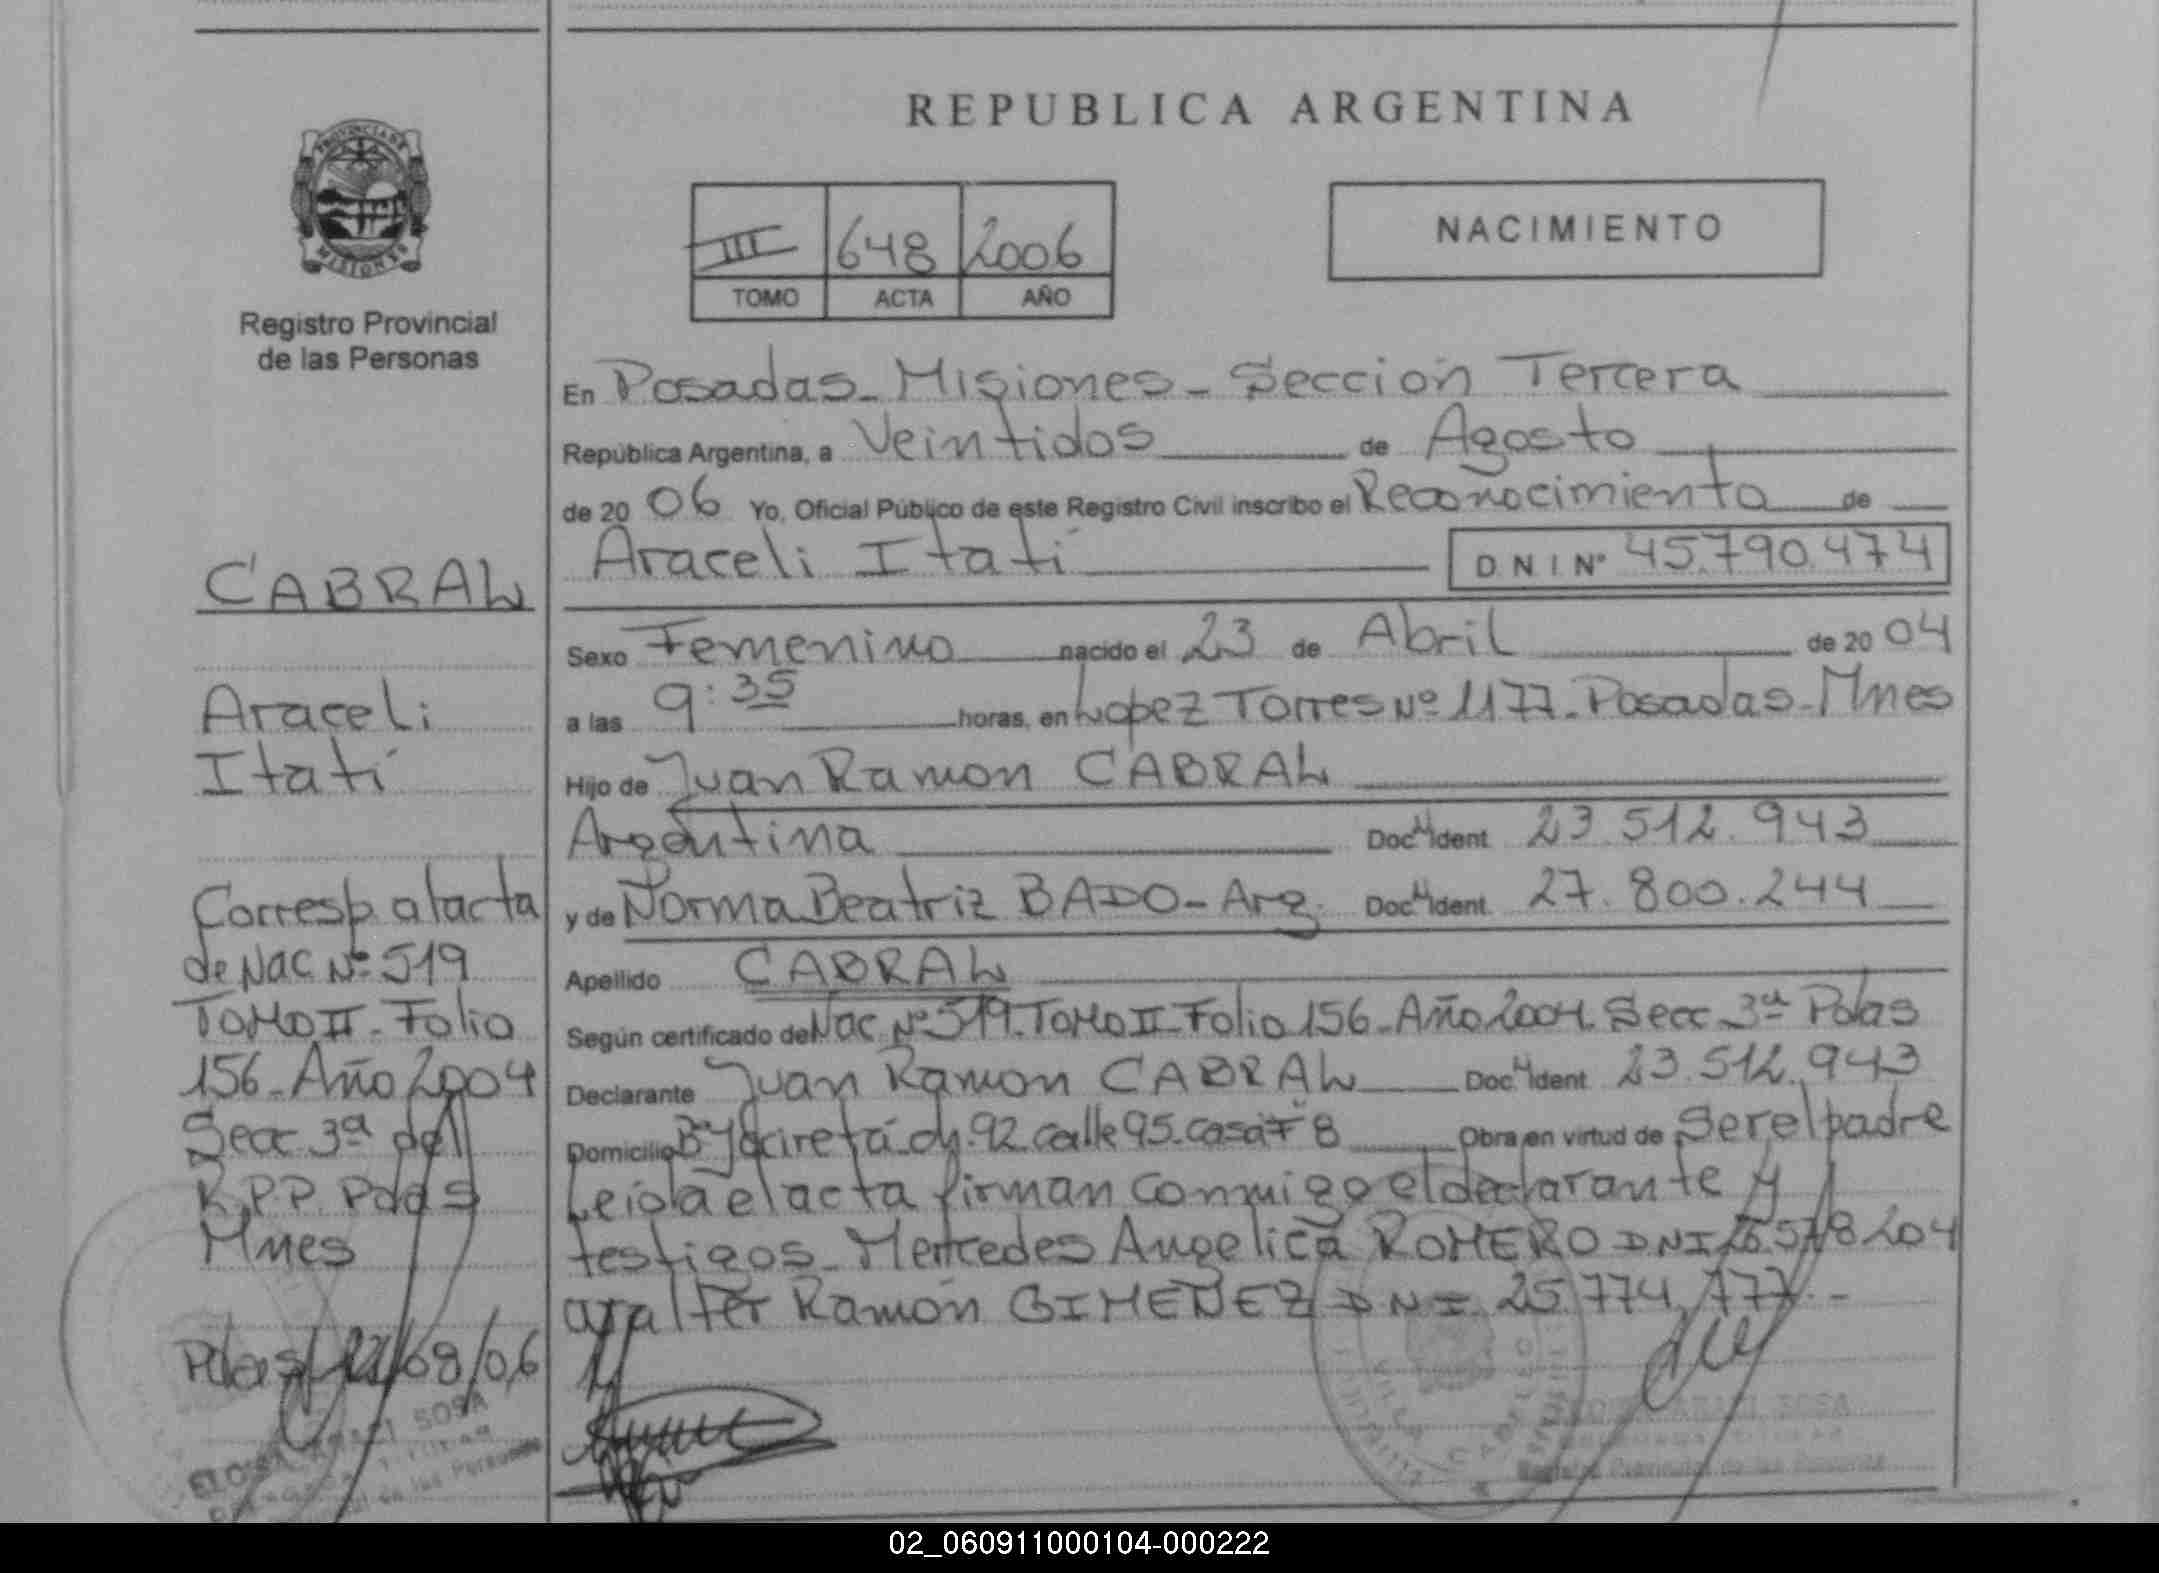 REPUBLICA ARGENTINA
PROVINCIA DE
MISIONES
Registro Provincial
de las Personas
III 648 2006
TOMO ACTA AÑO
NACIMIENTO
En Posadas - Misiones - Sección Tercera
República Argentina, a Veintidos de Agosto
de 20 06 Yo, Oficial Público de este Registro Civil inscribo el Reconocimiento de
Araceli Itatí D N I Nº 45.790.474
Sexo Femenino nacido el 23 de Abril de 20 04
a las 9:35 horas, en Lopez Torres Nº 1177 - Posadas - Mnes
Hijo de Juan Ramon CABRAL
Argentina Doc N Ident. 23.512.943
y de Norma Beatriz BADO - Arg. Doc N Ident. 27.800.244
Apellido CABRAL
Según certificado de Nac Nº 519 - Tomo II - Folio 156 - Año 2004 - Secc 3ª Pdas
Declarante Juan Ramon CABRAL Doc N Ident 23.512.943
Domicilio Bº Yaciretá - ch. 92 calle 95 - casa 8 Obra en virtud de ser el padre
Leida el acta firman conmigo el declarante y
testigos - Mercedes Angelica ROMERO DNI
Walter Ramón GIMENEZ DNI 25.774.777 -
CABRAL
Araceli
Itatí
Corresp al acta
de Nac Nº 519
TOMO II - Folio
156 - Año 2004
Secc 3ª del
R.P.P. Pdas
Mnes
Pdas 22/08/06
SOSA
de las Personas
SOSA
Registro Provincial de las Personas
02_060911000104-000222